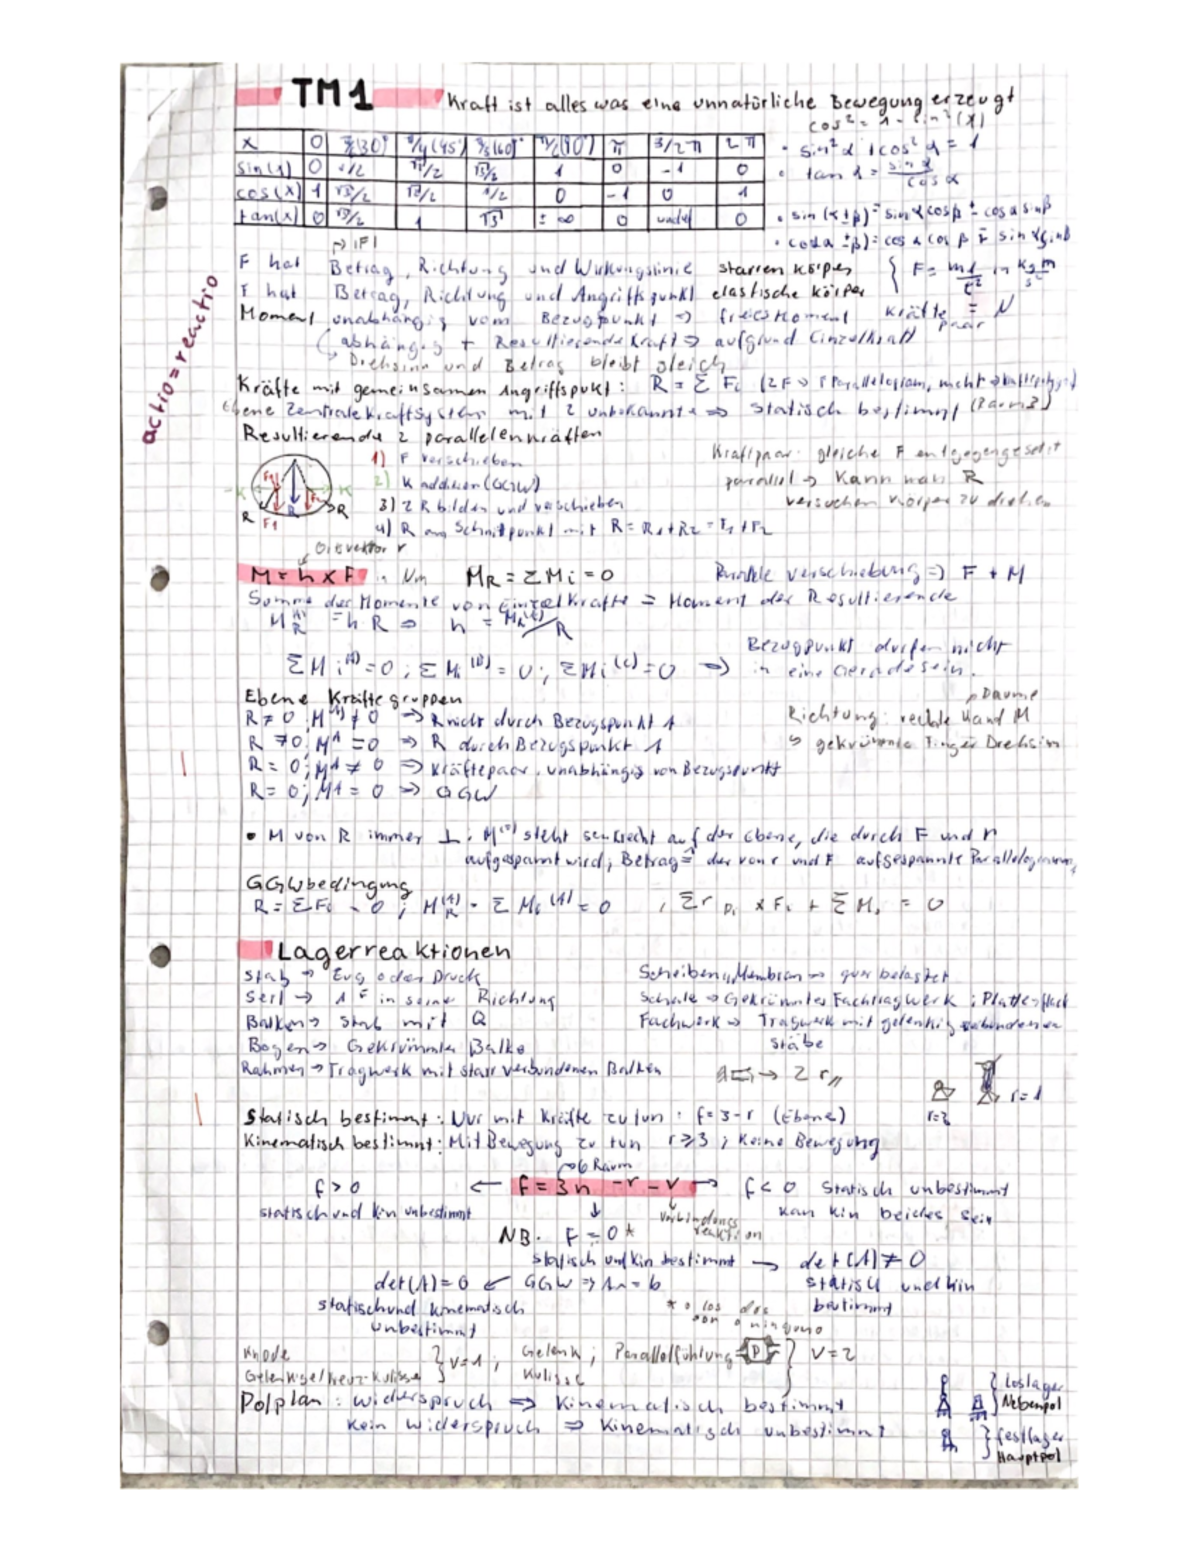 TM1
Kraft ist alles was eine unnatürliche Bewegung erzeugt
cos² = 1 - sin²(x)
x 0 (30° π/4 (45°) π/3 (60)° π/2 (90°) π 3/2 π 2π
sin(x) 0 1/2 √2/2 √3/2 1 0 -1 0
cos(x) 1 √3/2 √2/2 1/2 0 -1 0 1
tan(x) 0 √3/2 1 √3 ± ∞ 0 undef 0
• sin² α + cos² α = 1
• tan α = sin α / cos α
• sin (α ± β) = sin α cos β ± cos α sin β
• cos(α ± β) = cos α cos β ∓ sin α sin β
→ |F|
F hat Betrag, Richtung und Wirkungslinie starren Körper
F hat Betrag, Richtung und Angriffspunkt elastische Körper
F = in kg m / s² = N
Moment unabhängig vom Bezugpunkt → freies Moment Kräftepaar
abhängig + Resultierende Kraft → aufgrund Einzelkraft
→ Drehsinn und Betrag bleibt gleich
actio = reactio
Kräfte mit gemeinsamen Angriffspukt: R = Σ Fi
Ebene Zentrale Kraftsystem mit 2 unbekannte ⇒ Statisch bestimmt
Resultierende 2 parallelenkräften
1) F verschieben
2) K addieren (GGW)
3) 2 R bilden und verschieben
4) R am Schnittpunkt mit R = R1 + R2 = F1 + F2
K F1 K R F1 R R
Kraftpaar: gleiche F entgegengesetzt
parallel → Kann man R
versuchen Körper zu drehen
Ortsvektor r
M = h x F in Nm MR = Σ Mi = 0
Parallele verschiebung ⇒ F + M
Summe der Momente von Einzelkräfte = Moment der Resultierende
M R (A) = h R ⇒ h = MR(A) / R
Σ Mi (A) = 0 ; Σ Mi (B) = 0 ; Σ Mi (C) = 0 →
Bezugpunkt dürfen nicht
in eine Gerade sein.
Ebene Kräftegruppen
R ≠ 0 ; M(A) ≠ 0 → R nicht durch Bezugspunkt A
R ≠ 0 ; MA = 0 ⇒ R durch Bezugspunkt A
R = 0 ; MA ≠ 0 ⇒ Kräftepaar, unabhängig von Bezugspunkt
R = 0 ; MA = 0 ⇒ GGW
→ Daume
Richtung: rechte Hand M
↳ gekrümmte Finger Drehsin
• M von R immer ⊥ : M steht senkrecht auf der Ebene, die durch F und r
aufgespannt wird ; Betrag = der von r und F aufgespannte Parallelogramm
GGWbedingung
R = Σ Fi = 0 ; MR(A) = Σ Mi (A) = 0 , Σ r Pi x Fi + Σ Mi = 0
Lagerreaktionen
Stab → Zug oder Druck
Seil → 1 F in seine Richtung
Balken → Stab mit Q
Bogen → Gekrümmter Balke
Rahmen → Tragwerk mit starr verbundenen Balken
Scheiben, Membran → quer belastet
Schale → Gekrümmtes Fachtragwerk ; Platte flach
Fachwerk → Tragwerk mit gelenkig verbundenen
Stäbe
→ 2 r
r=2
r=1
Statisch bestimmt: Nur mit Kräfte zu tun : f = 3 - r (Ebene)
Kinematisch bestimmt: Mit Bewegung zu tun r ≥ 3 ; Keine Bewegung
→ 6 Raum
f > 0 ← f = 3n - r - v → f < 0 Statisch unbestimmt
statisch und kin unbestimmt
Verbindungs reaktion
kan kin beides sein
NB. F = 0 *
statisch und kin bestimmt → det(A) ≠ 0
det(A) = 0 ← GGW ⇒ Ax = b
statisch und kin
bestimmt
statisch und kinematisch
unbestimmt
* o los dos
o ninguno
} v=1 ; Gelenk ; Parallelführung P } v = 2
Kulisse
Polplan : widerspruch ⇒ Kinematisch bestimmt
Kein widerspruch ⇒ Kinematisch unbestimmt
} Loslager
Nebenpol
} festlager
Hauptpol